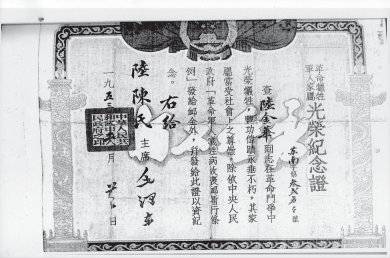 革命犧牲
軍人家屬
光榮紀念證
查陸金華同志在革命鬥爭中
光榮犧牲,豐功偉績永垂不朽,其家
屬當受社會上之尊崇。除依中央人民
政府「革命軍人犧牲病故褒卹暫行條
例」發給卹金外,并發給此證以資紀
念。
右給
陸陳氏
主席毛澤東
一九五三年 月 日